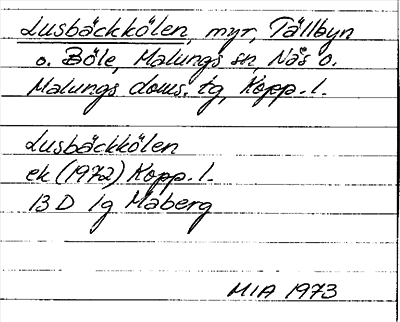 Lusbäckkölen, myr, Tällbyn
o. Böle, Malungs sn, Näs o.
Malungs doms. tg, Kopp. l.
Lusbäckkölen
ek (1972) Kopp. l.
13 D 1g Maberg
MIA 1973